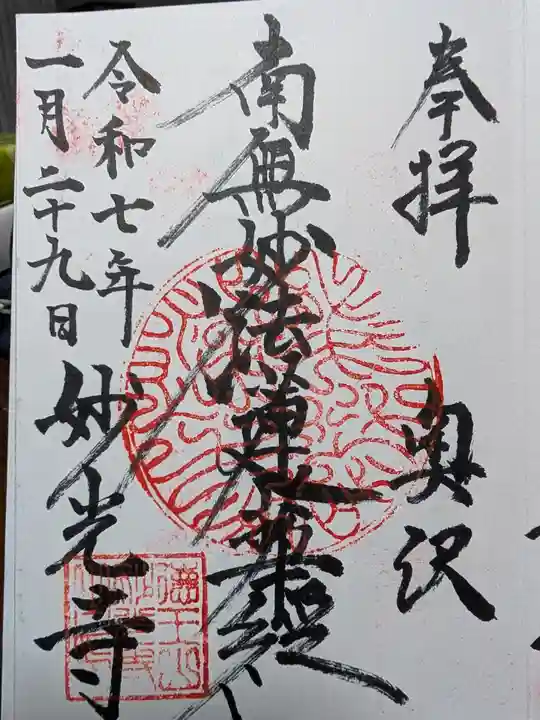 奉拝 奥沢
南無妙法蓮華經
令和七年
一月二十九日 妙光寺